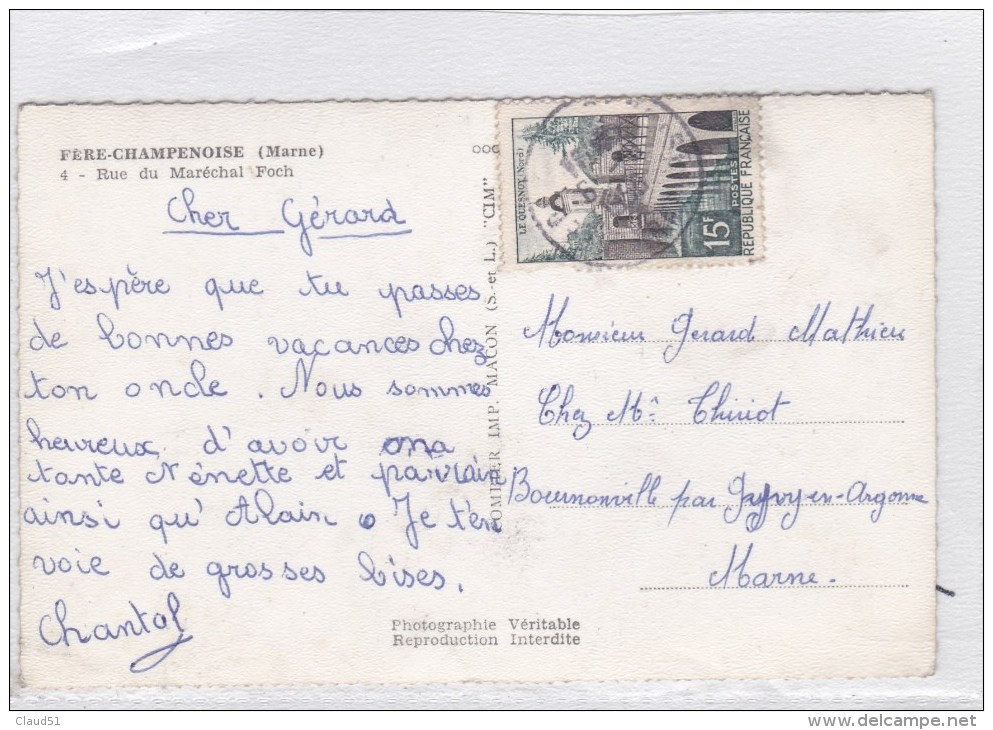 FÈRE-CHAMPENOISE (Marne)
4 - Rue du Maréchal Foch
Cher Gérard
J'espère que tu passes
de bonnes vacances chez
ton oncle. Nous sommes
heureux d'avoir ma
tante Nénette et parrain
ainsi qu'Alain. Je t'en
voie de grosses bises.
Chantal
IMP. MACON (S.-et L.) "CIM"
Photographie Véritable
Reproduction Interdite
LE QUESNOY (Nord)
15F
POSTES
REPUBLIQUE FRANÇAISE
Monsieur Gerard Mathieu
Chez Mr Thiriot
par en-Argonne
Marne.
Claud51
www.delcampe.net